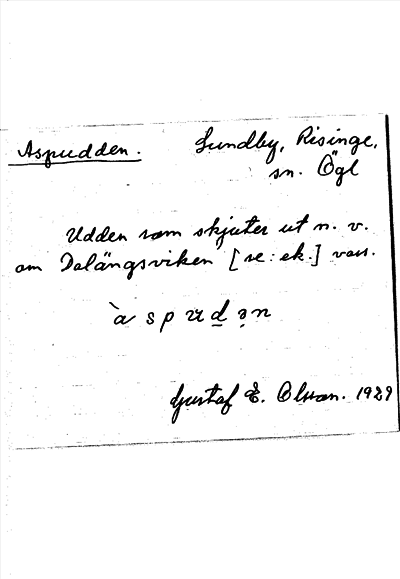 Aspudden. Lundby, Risinge,
sn. Ögl
Udden som skjuter ut n. v.
om Dalängsviken [se: ek.] vass.
àspuḏən
Gustaf E. Olsson. 1929